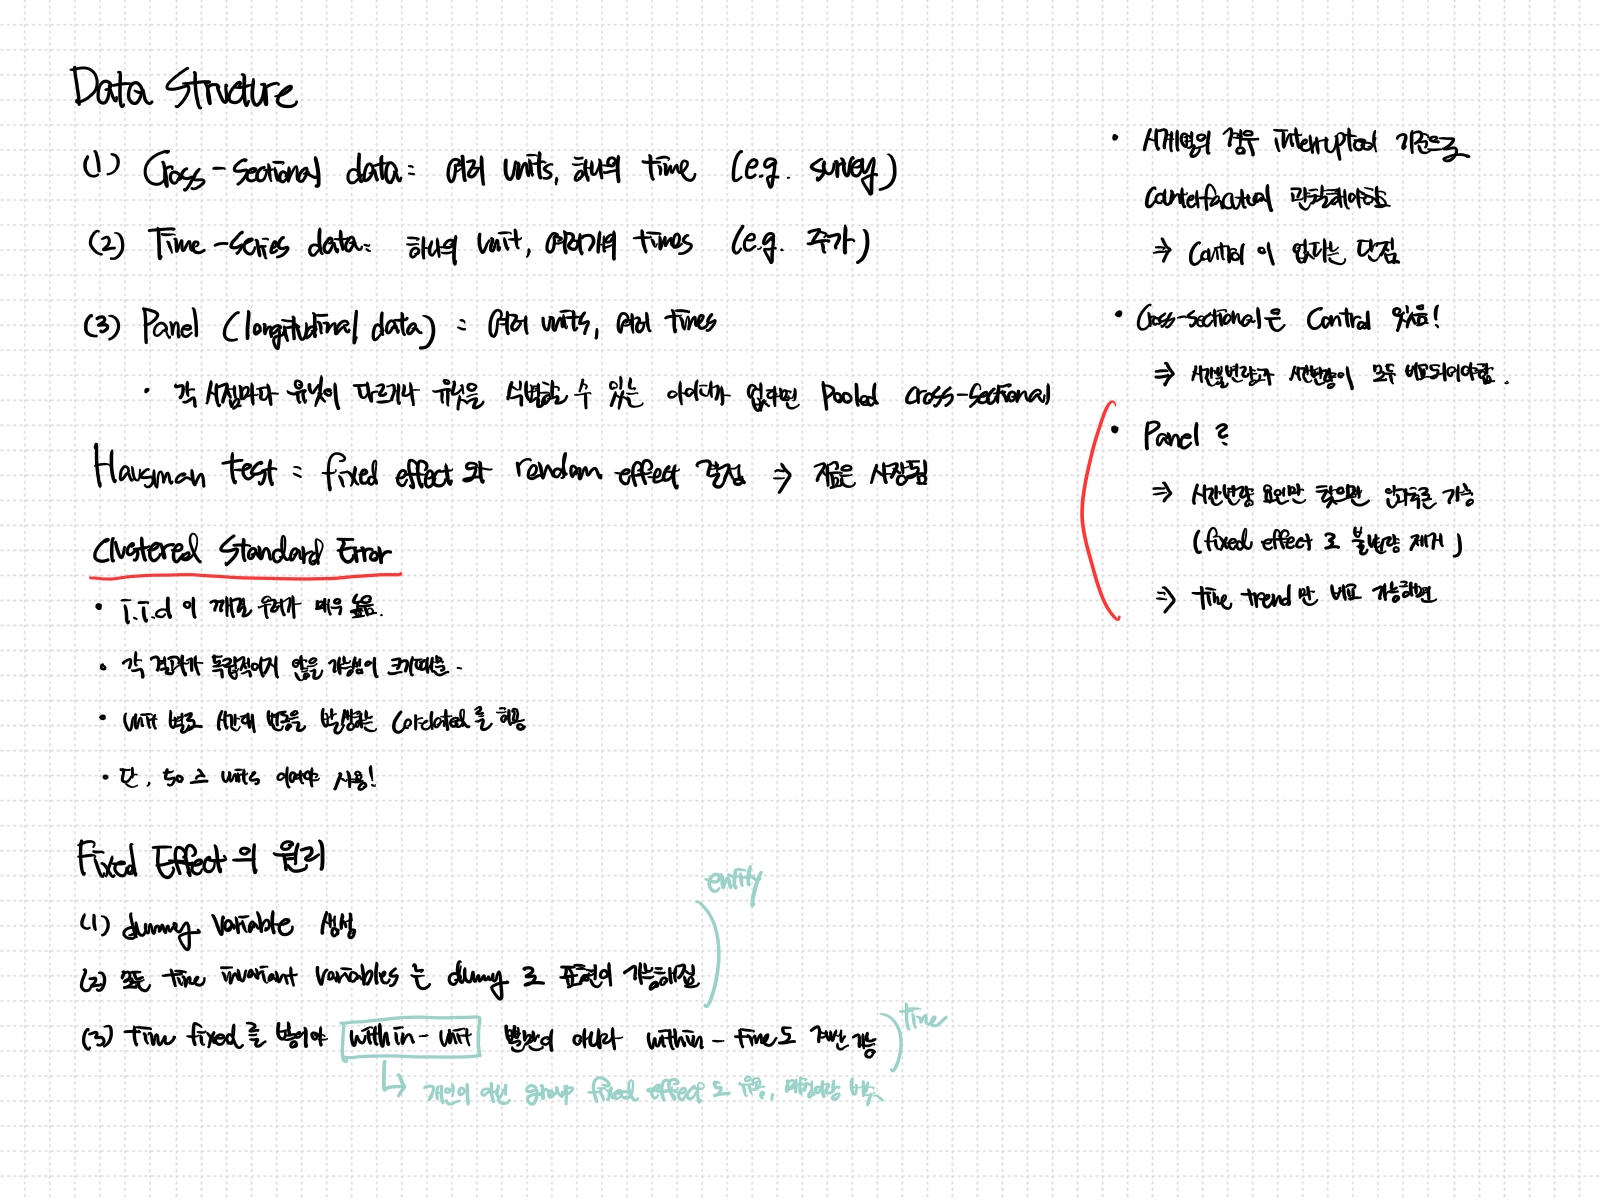 Data Structure
(1) Cross-Sectional data = 여러 units, 하나의 time (e.g. survey)
(2) Time-series data = 하나의 unit, 여러개의 times (e.g. 주가)
(3) Panel (longitudinal data) = 여러 units, 여러 times
· 각 시점마다 유닛이 다르거나 유닛을 식별할 수 있는 아이디가 없다면 Pooled cross-sectional
Hausman test = fixed effect 와 random effect 결정 ⇒ 지금은 사장됨
Clustered Standard Error
· i.i.d 이 깨질 우려가 매우 높음.
· 각 결과가 독립적이지 않을 가능성이 크기때문.
· unit 별로 시간에 변동을 발생하는 correlated를 허용
· 단, 50 ≤ units 이여야 사용!
Fixed Effect의 원리
entity
(1) dummy variable 생성
(2) 모든 time invariant variables 는 dummy 로 표현이 가능해짐
(3) Time fixed를 넣어야 within-unit 뿐만이 아니라 within-time도 계산 가능
time
↳ 개인이 아닌 group fixed effect도 유용,
· 시계열의 경우 interrupted 기준으로
counterfactual 관찰해야함
⇒ Control 이 없다는 단점
· Cross-sectional은 Control 있음!
⇒ 시간불변량과 시간변량이 모두 비교되어야함.
· Panel?
⇒ 시간변량 요인만 찾으면 인과추론 가능
(fixed effect로 불변량 제거)
⇒ time trend만 비교 가능하면